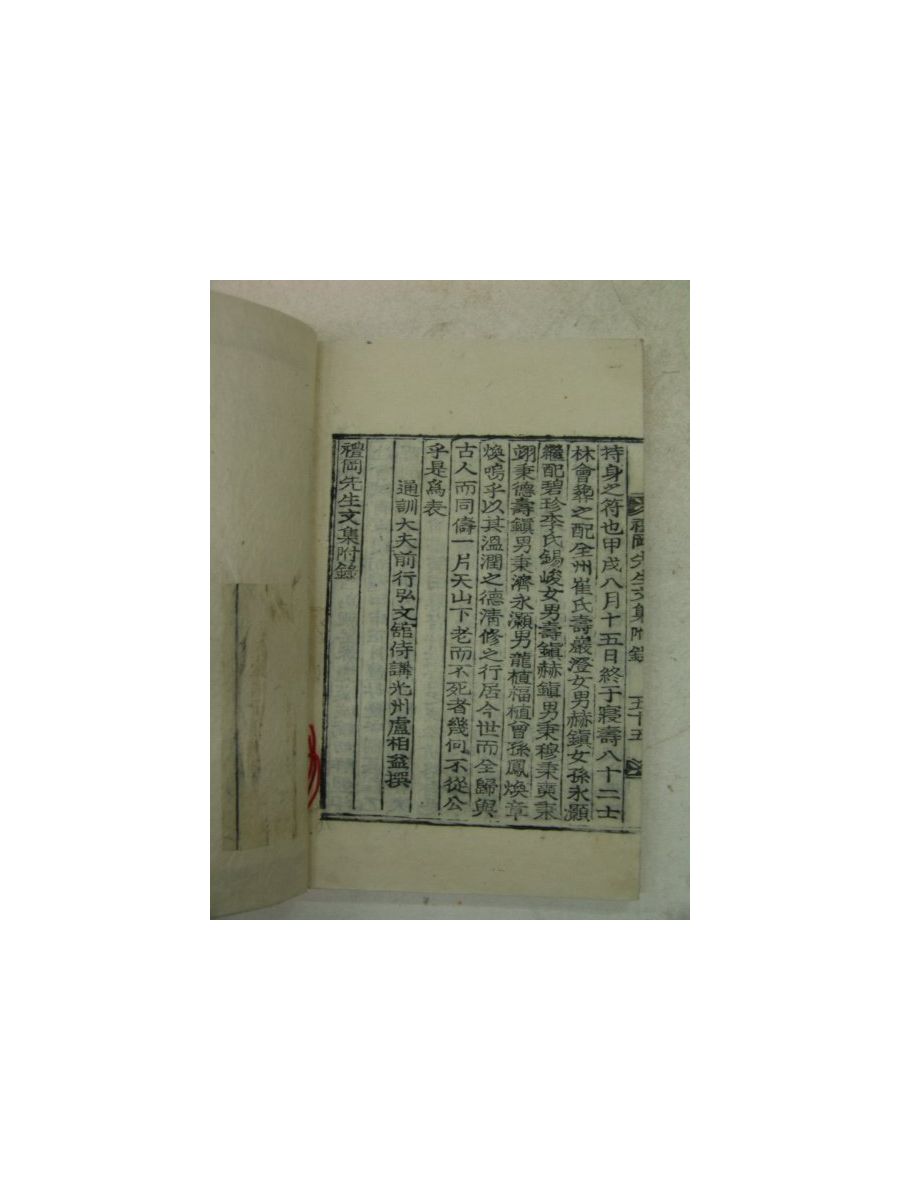 禮岡先生文集附錄 五十五
持身之符也甲戌八月十五日終于寢壽八十二士
林會葬之配全州崔氏壽巖澄女男赫鎭女孫永灝
繼配碧珍李氏錫峻女男壽鎭赫鎭男秉穆秉奭秉
翊秉德壽鎭男秉濟永灝男龍植福植曾孫鳳煥章
煥嗚乎以其溫潤之德淸修之行居今世而全歸與
古人而同儔一片天山下老而不死者幾何不從公
乎是爲表
通訓大夫前行弘文館侍講光州盧相益撰
禮岡先生文集附錄